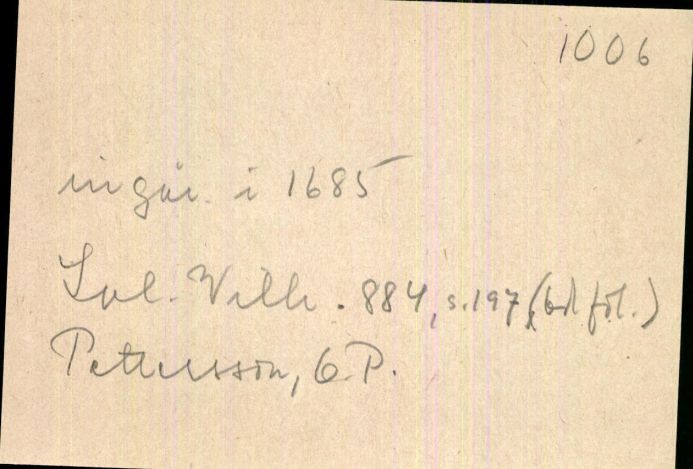 1006
ingår i 1685
Sal. Wilh. 884, s. 197, fol.)
Pettersson, O.P.